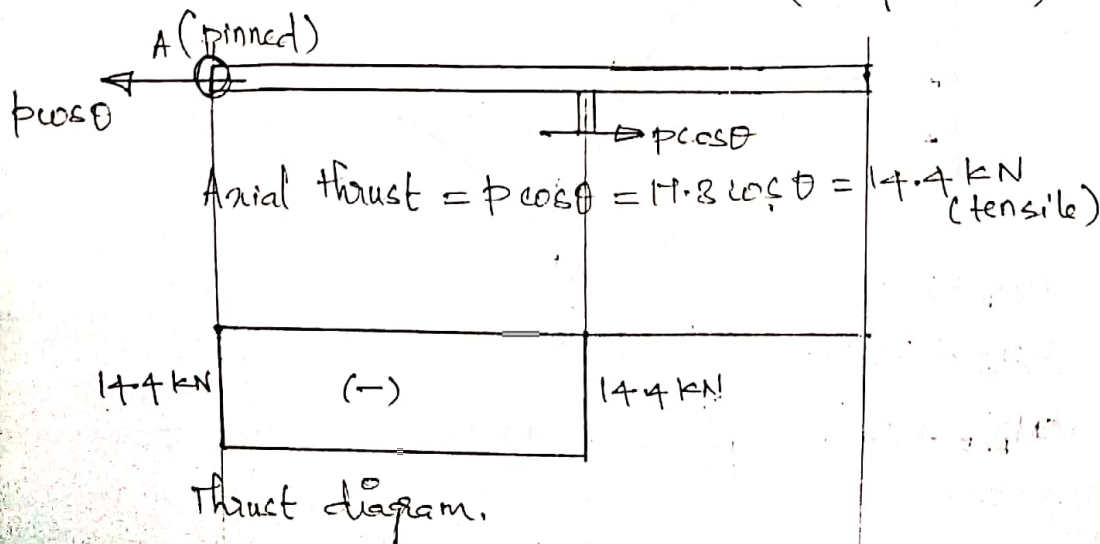 A (pinned)
pcosθ
pcosθ
Axial thrust = pcosθ = 17.8 cosθ = 14.4 kN
(tensile)
14.4 kN (-) 14.4 kN
Thrust diagram.